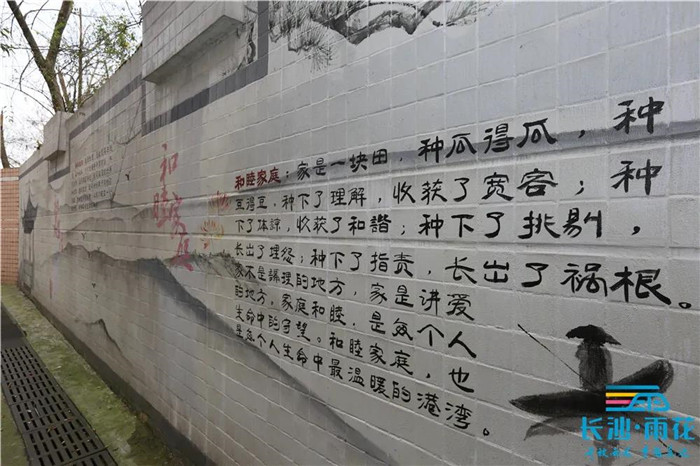 和睦
家庭
和睦家庭：家是一块田，种瓜得瓜，种
豆得豆，种下了理解，收获了宽客；种
下了体諒，收获了和諧；种下了挑剔，
长出了埋怨；种下了指责，长出了祸根。
家不是講理的地方，家是讲爱
的地方，家庭和睦，是每个人
生命中的守望。和睦家庭，也
是每个人生命中最温暖的港湾。
长沙·雨花